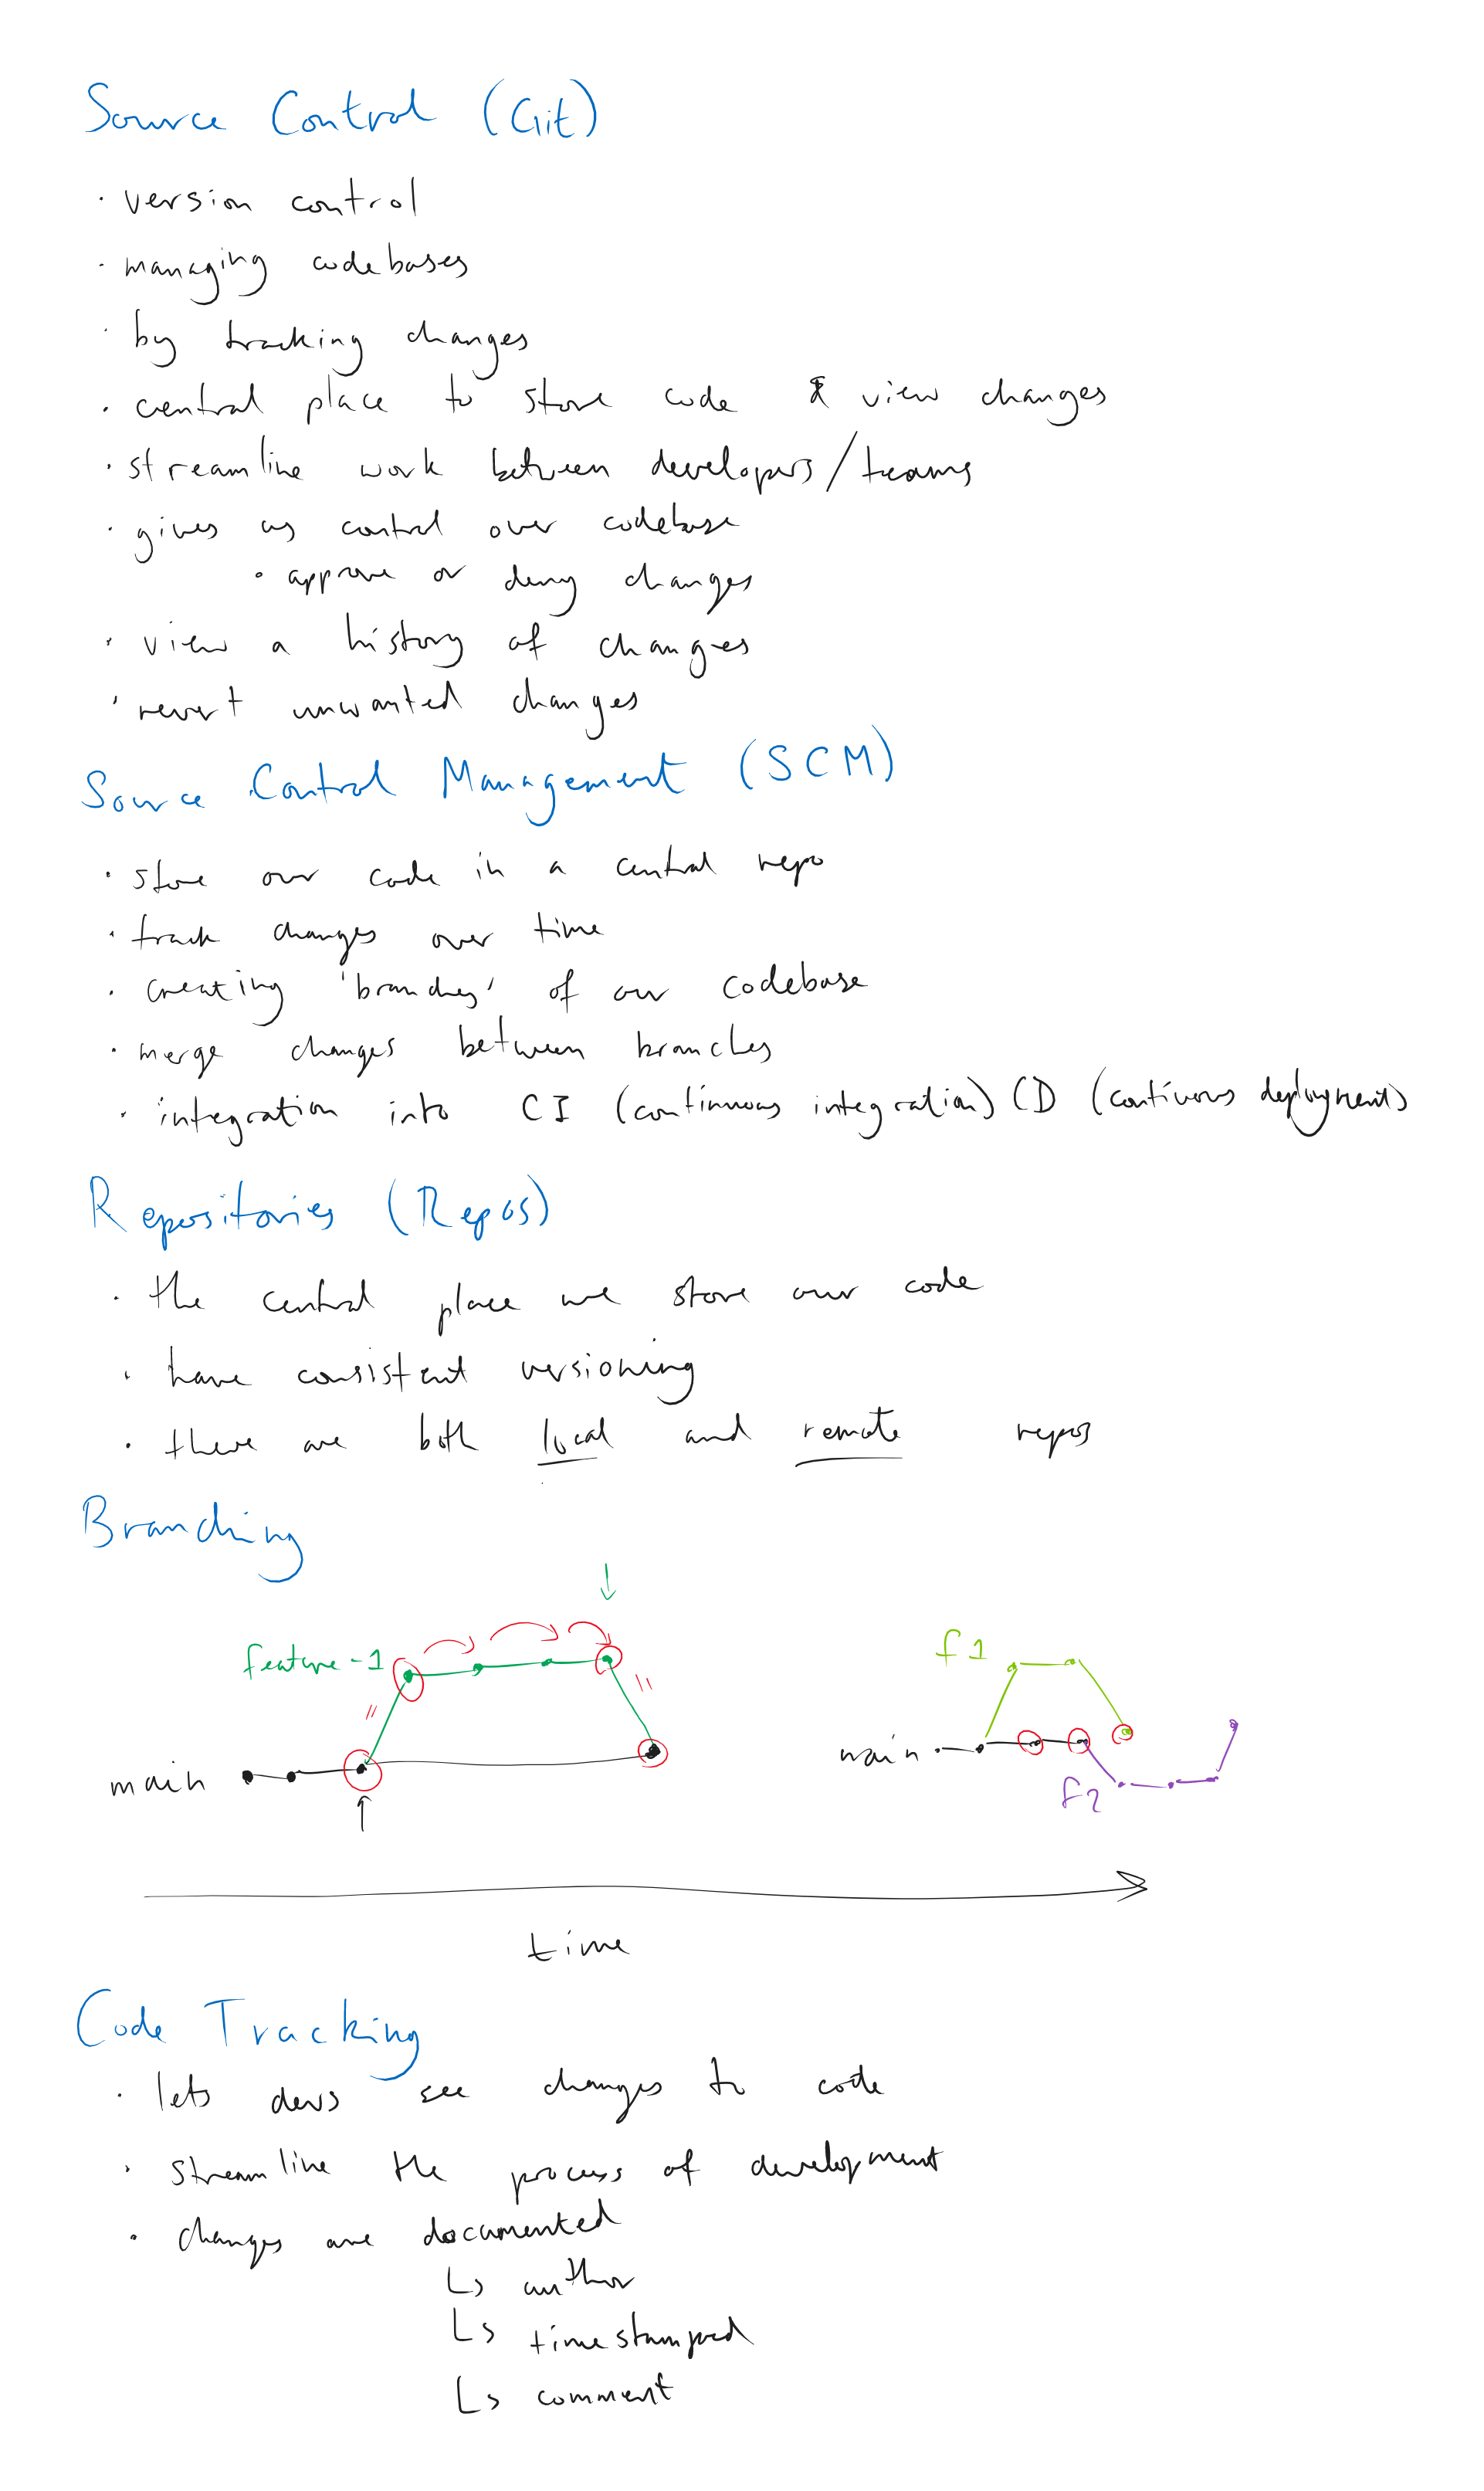 Source Control (Git)
· version control
· managing codebases
· by tracking changes
· central place to store code & view changes
· streamline work between developers/teams
· gives us control over codebase
· approve or deny changes
· view a history of changes
· revert unwanted changes
Source Control Management (SCM)
· store our code in a central repo
· track changes over time
· creating 'branches' of our codebase
· merge changes between branches
· integration into CI (continuous integration) CD (continuous deployment)
Repositories (Repos)
· the central place we store our code
· have consistent versioning
· there are both local and remote repos
Branching
feature-1
f1
main
main
f2
time
Code Tracking
· lets devs see changes to code
· streamline the process of development
· changes are documented
↳ author
↳ timestamped
↳ comment